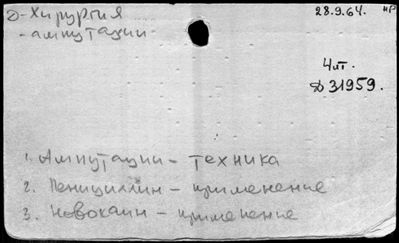 Д-Хирургия
28.9.64. НР
-ампутации
4 лт.
Д 31959.
1. Ампутации - техника
2. Пенициллин - применение
3. Новокаин - применение